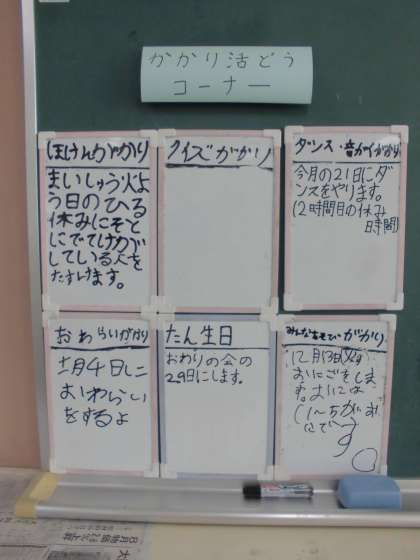 かかり活どう
コーナー
ほけんがかり
まいしゅう火よ
う日のひる
休みにそと
にでてけが
している人を
たすけます。
クイズがかり
ダンス・音がくがかり
今月の21日にダ
ンスをやります。
(2時間目の休み
時間)
おわらいがかり
十二月4日に
おわらい
をするよ
たん生日
おわりの会の
29日にします。
みんなあそびがかり
12月13日
おにごをしま
す。おには